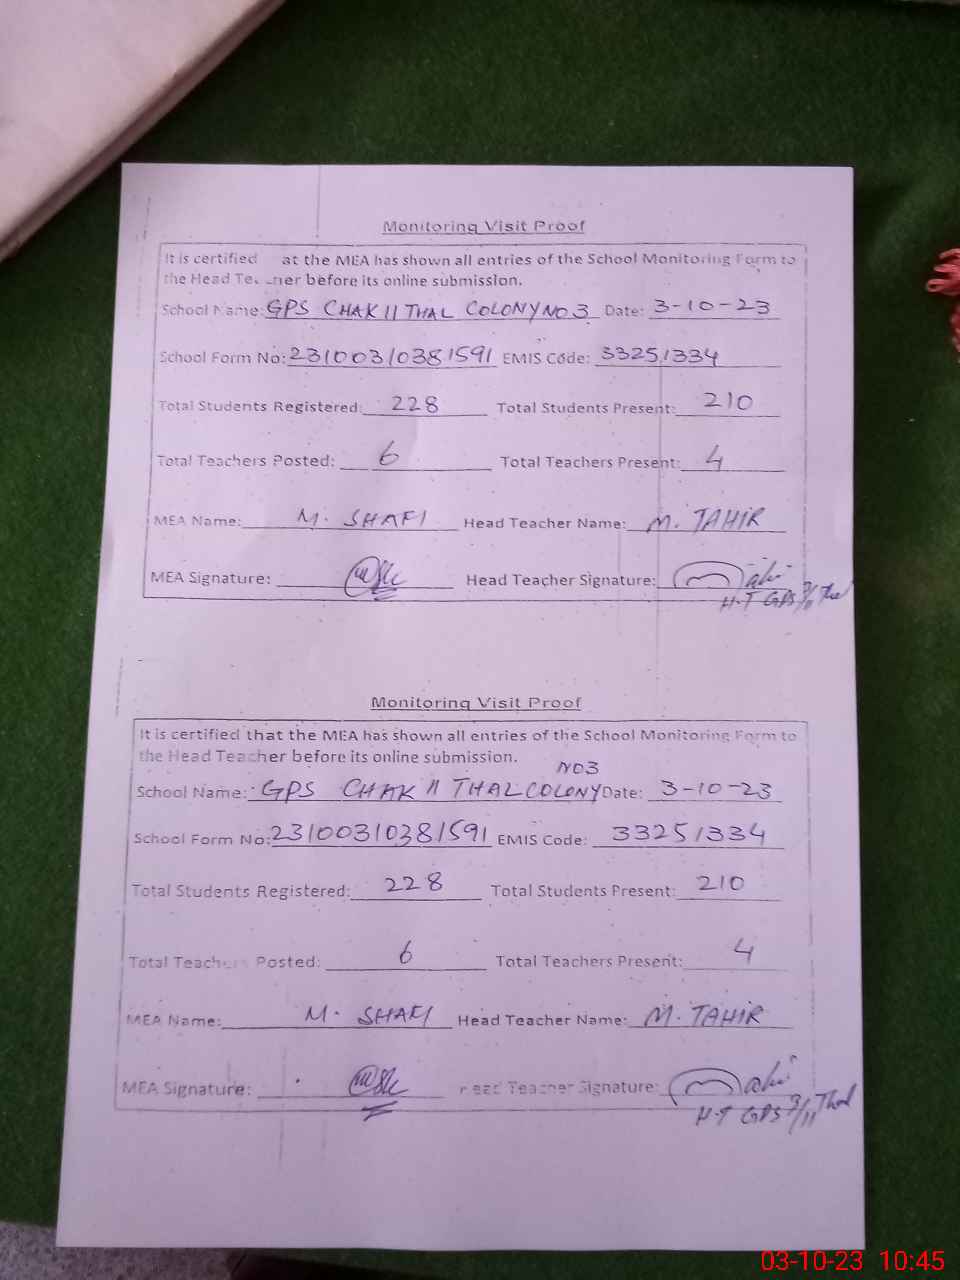 Monitoring Visit Proof
It is certified at the MEA has shown all entries of the School Monitoring Form to
the Head Teacher before its online submission.
School Name: GPS CHAK 11 THAL COLONY NO 3 Date: 3-10-23
School Form No: 23100310381591 EMIS Code: 33251334
Total Students Registered: 228 Total Students Present: 210
Total Teachers Posted: 6 Total Teachers Present: 4
MEA Name: M. SHAFI Head Teacher Name: M. TAHIR
MEA Signature: Head Teacher Signature:
H.T GPS 3/11 Thal
Monitoring Visit Proof
It is certified that the MEA has shown all entries of the School Monitoring Form to
the Head Teacher before its online submission.
NO3
School Name: GPS CHAK 11 THAL COLONY Date: 3-10-23
School Form No: 23100310381591 EMIS Code: 33251334
Total Students Registered: 228 Total Students Present: 210
Total Teachers Posted: 6 Total Teachers Present: 4
MEA Name: M. SHAFI Head Teacher Name: M. TAHIR
MEA Signature: Head Teacher Signature:
H.T GPS 3/11 Thal
03-10-23 10:45